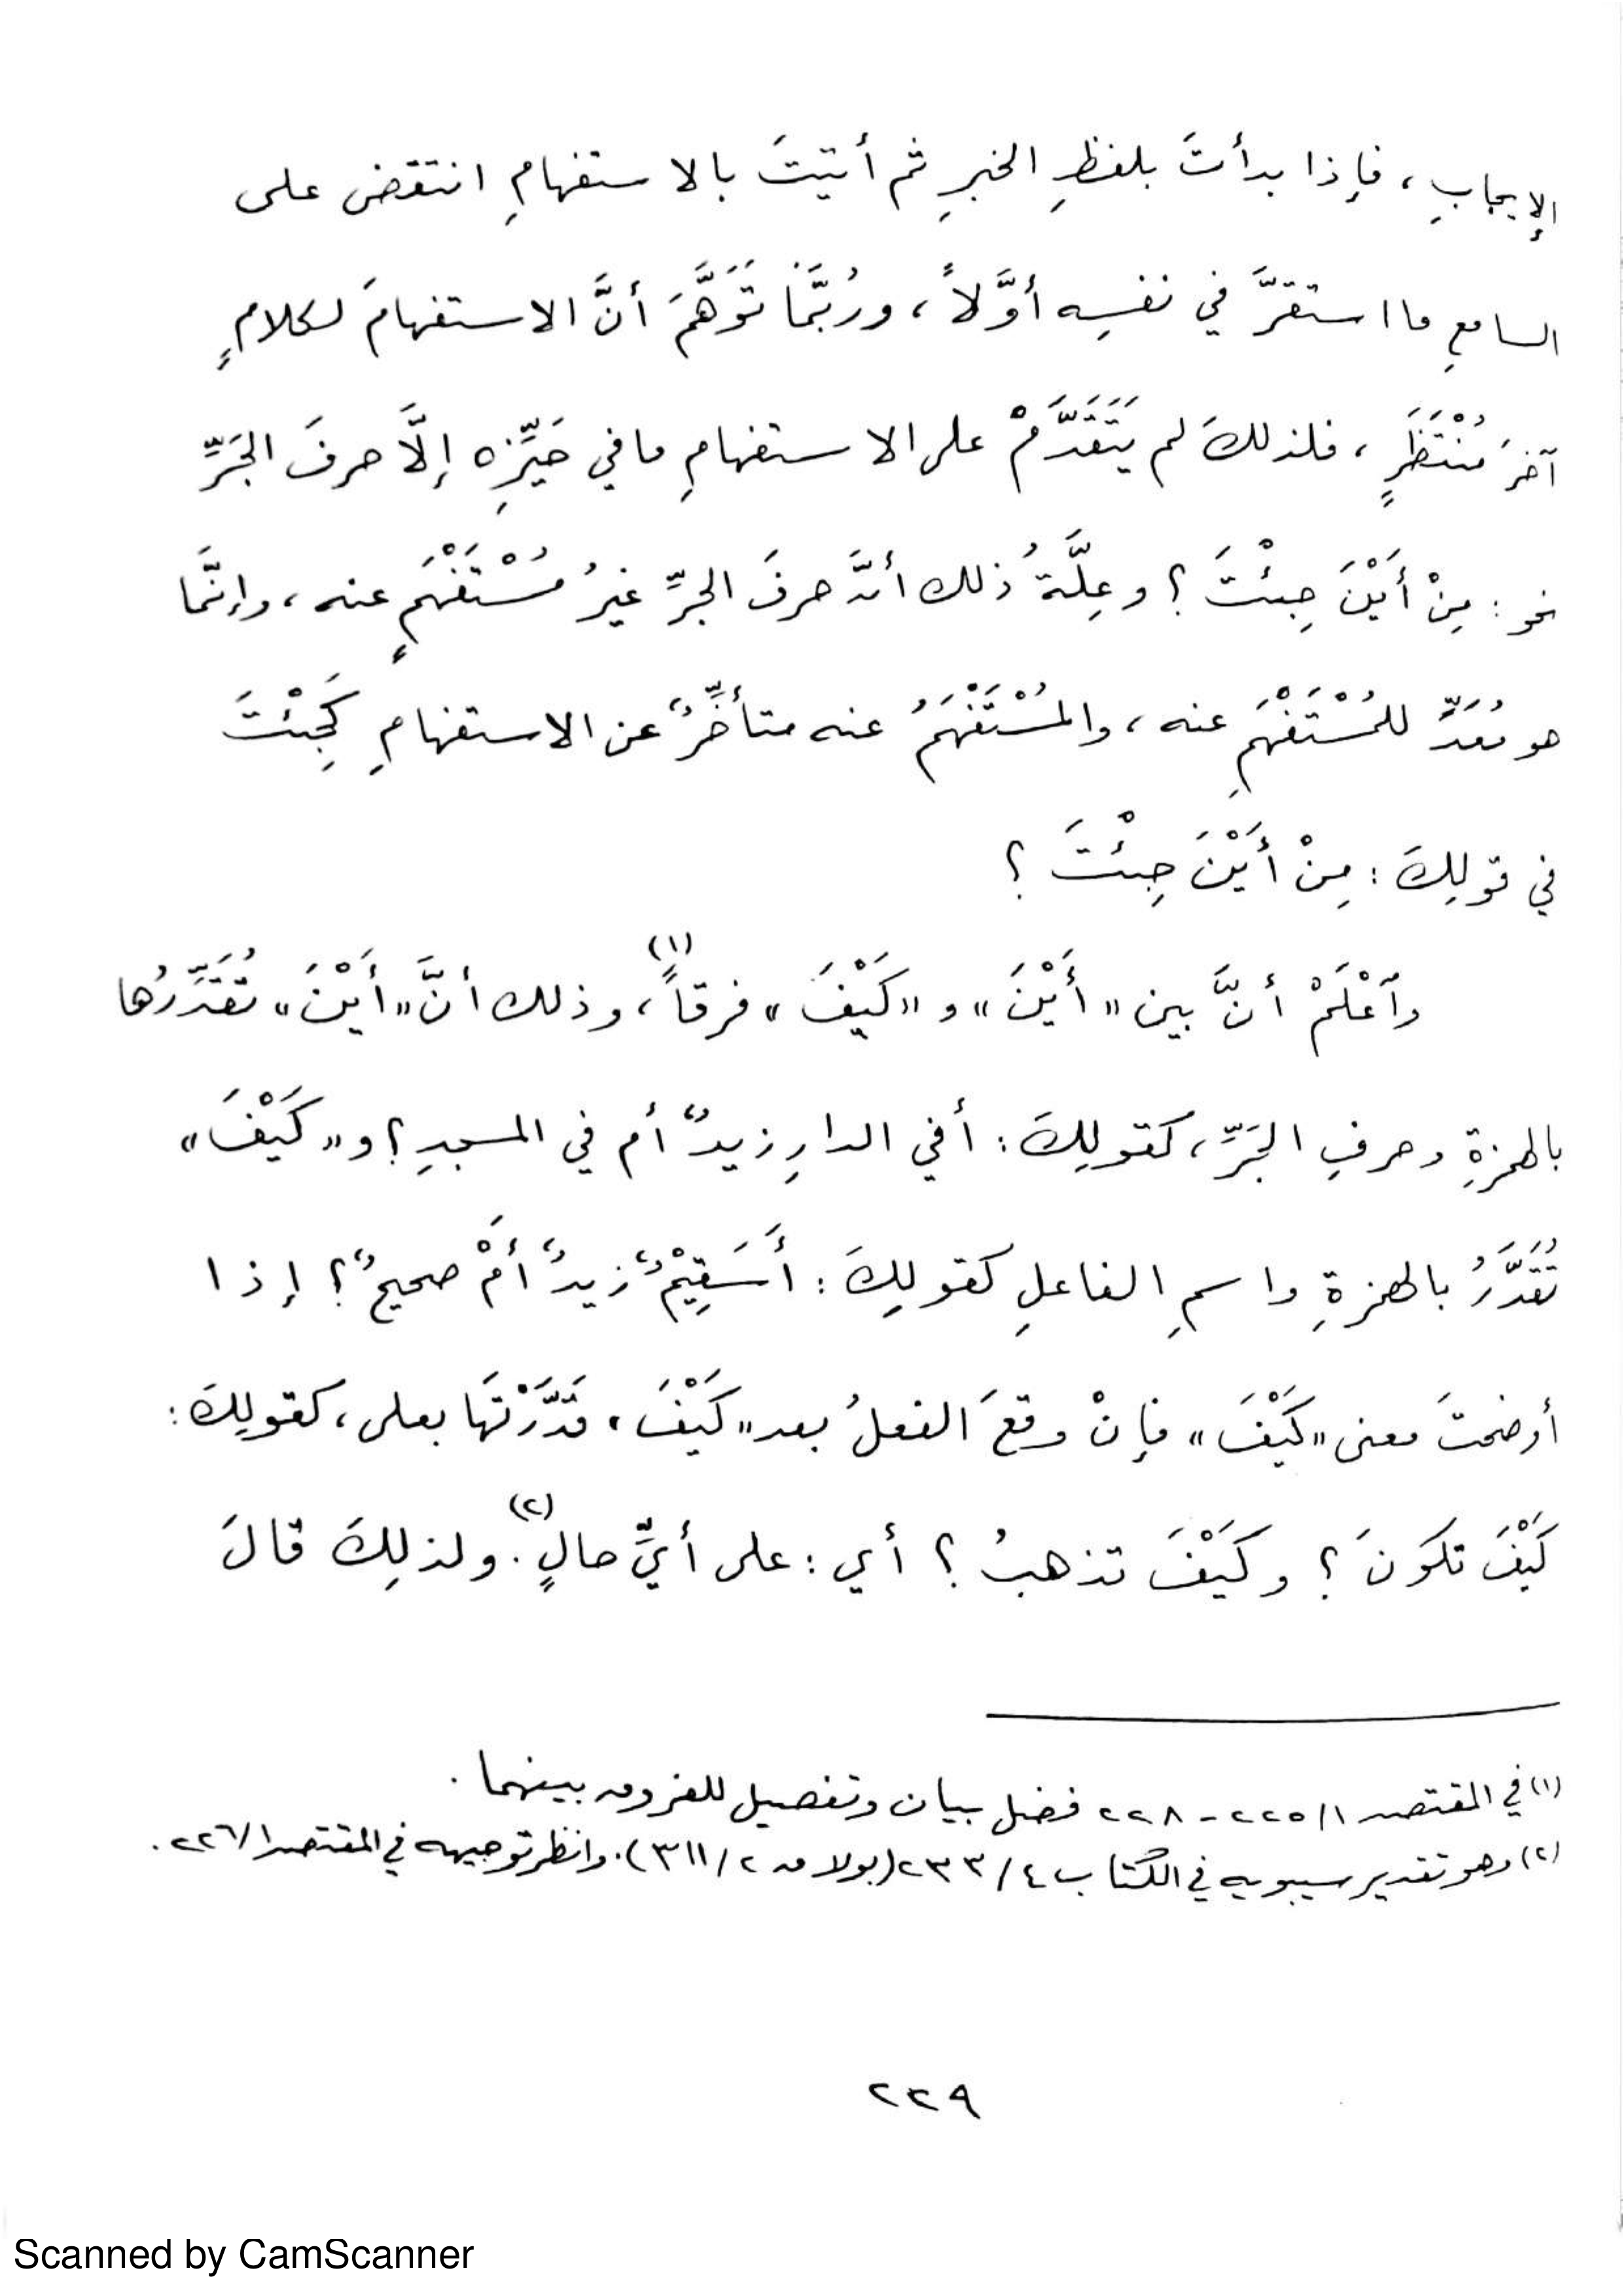 الإيجابِ، فإذا بدأتَ بلفظِ الخبرِ ثم أتيتَ بالاستفهامِ انتقض على
السامعِ ما استقرَّ في نفسِه أوَّلاً، ورُبَّمَا تَوَهَّمَ أنَّ الاستفهامَ لكلامٍ
آخرَ مُنْتَظَرٍ، فلذلكَ لم يَتَقَدَّمْ على الاستفهامِ ما في حَيِّزِه إلَّا حرفَ الجَرِّ
نحو: مِنْ أَيْنَ جِئْتَ؟ وعِلَّةُ ذلك أنَّ حرفَ الجرِّ غيرُ مُسْتَفْهَمٍ عنه، وإنَّما
هو مُعَدٍّ للمُسْتَفْهَمِ عنه، والمُسْتَفْهَمُ عنه متأخِّرٌ عن الاستفهامِ كَجِئْتَ
في قولِكَ: مِنْ أَيْنَ جِئْتَ؟
وٱعْلَمْ أنَّ بين «أَيْنَ» و«كَيْفَ» فرقاً(١)، وذلك أنَّ «أَيْنَ» تُقَدِّرُها
بالهمزةِ وحرفِ الجَرِّ، كقولِكَ: أفي الدارِ زيدٌ أم في المسجدِ؟ و«كَيْفَ»
تُقَدَّرُ بالهمزةِ واسمِ الفاعلِ كقولِكَ: أَسَقِيْمٌ زيدٌ أَمْ صحيحٌ؟ إذا
أوضحتَ معنى «كَيْفَ» فإنْ وقعَ الفعلُ بعد «كَيْفَ» قَدَّرْتَهَا بعلى، كقولِكَ:
كَيْفَ تكونَ؟ وكَيْفَ تذهبُ؟ أي: على أيِّ حالٍ(٢). ولذلِكَ قالَ
(١) في المقتصد ١/٢٢٥ - ٢٢٨ فضل بيان وتفصيل للفروق بينهما.
(٢) وهو تقدير سيبويه في الكتاب ٤/٢٣٣ (بولاق ٢/٣١١). وانظر توجيهه في المقتصد ١/٢٢٦.
٢٢٩
Scanned by CamScanner